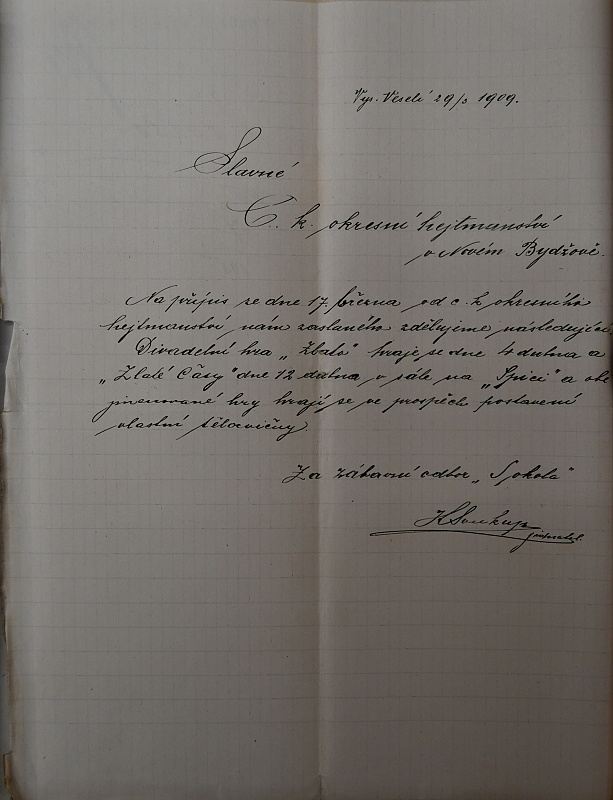 Vys. Veselí 29/3 1909.
Slavné
C. k. okresní hejtmanství
v Novém Bydžově.
Na přípis ze dne 17. března od c. k. okresního
hejtmanství nám zaslaného zdělujeme následující
Divadelní hra „ " hraje se dne 4 dubna a
„Zlaté Časy" dne 12 dubna v sále na „Špici" a obě
jmenované hry hrají se ve prospěch postavení
vlastní tělocvičny.
Za zábavní odbor „Sokola"
K Soukup
jednatel.